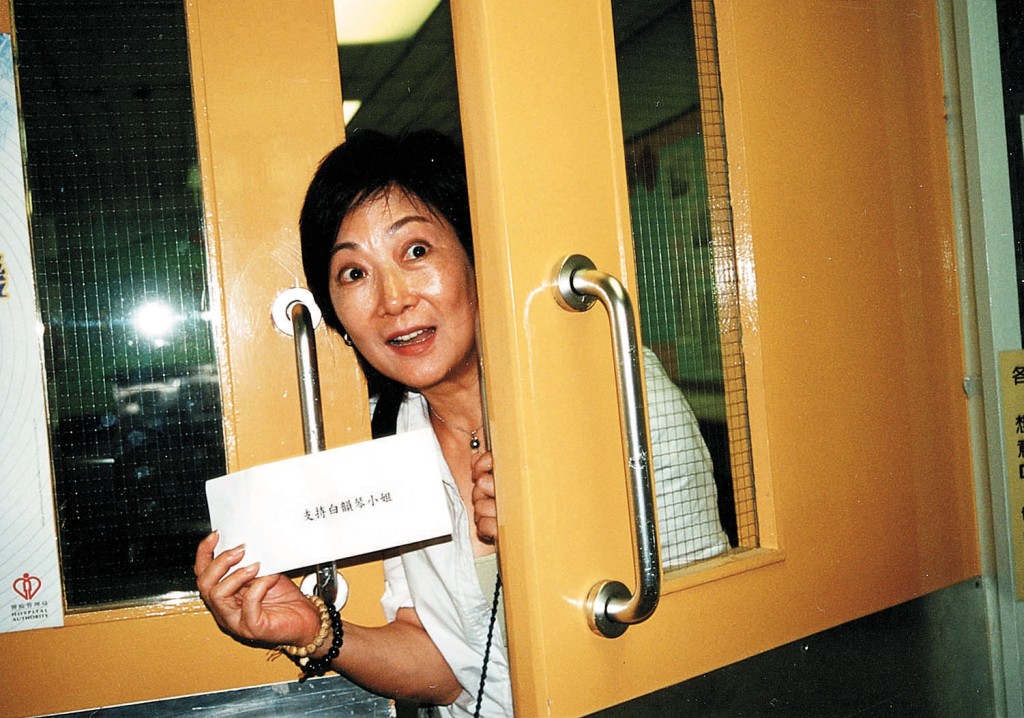 支持白韻琴小姐
醫院管理局
HOSPITAL
AUTHORITY
各
想